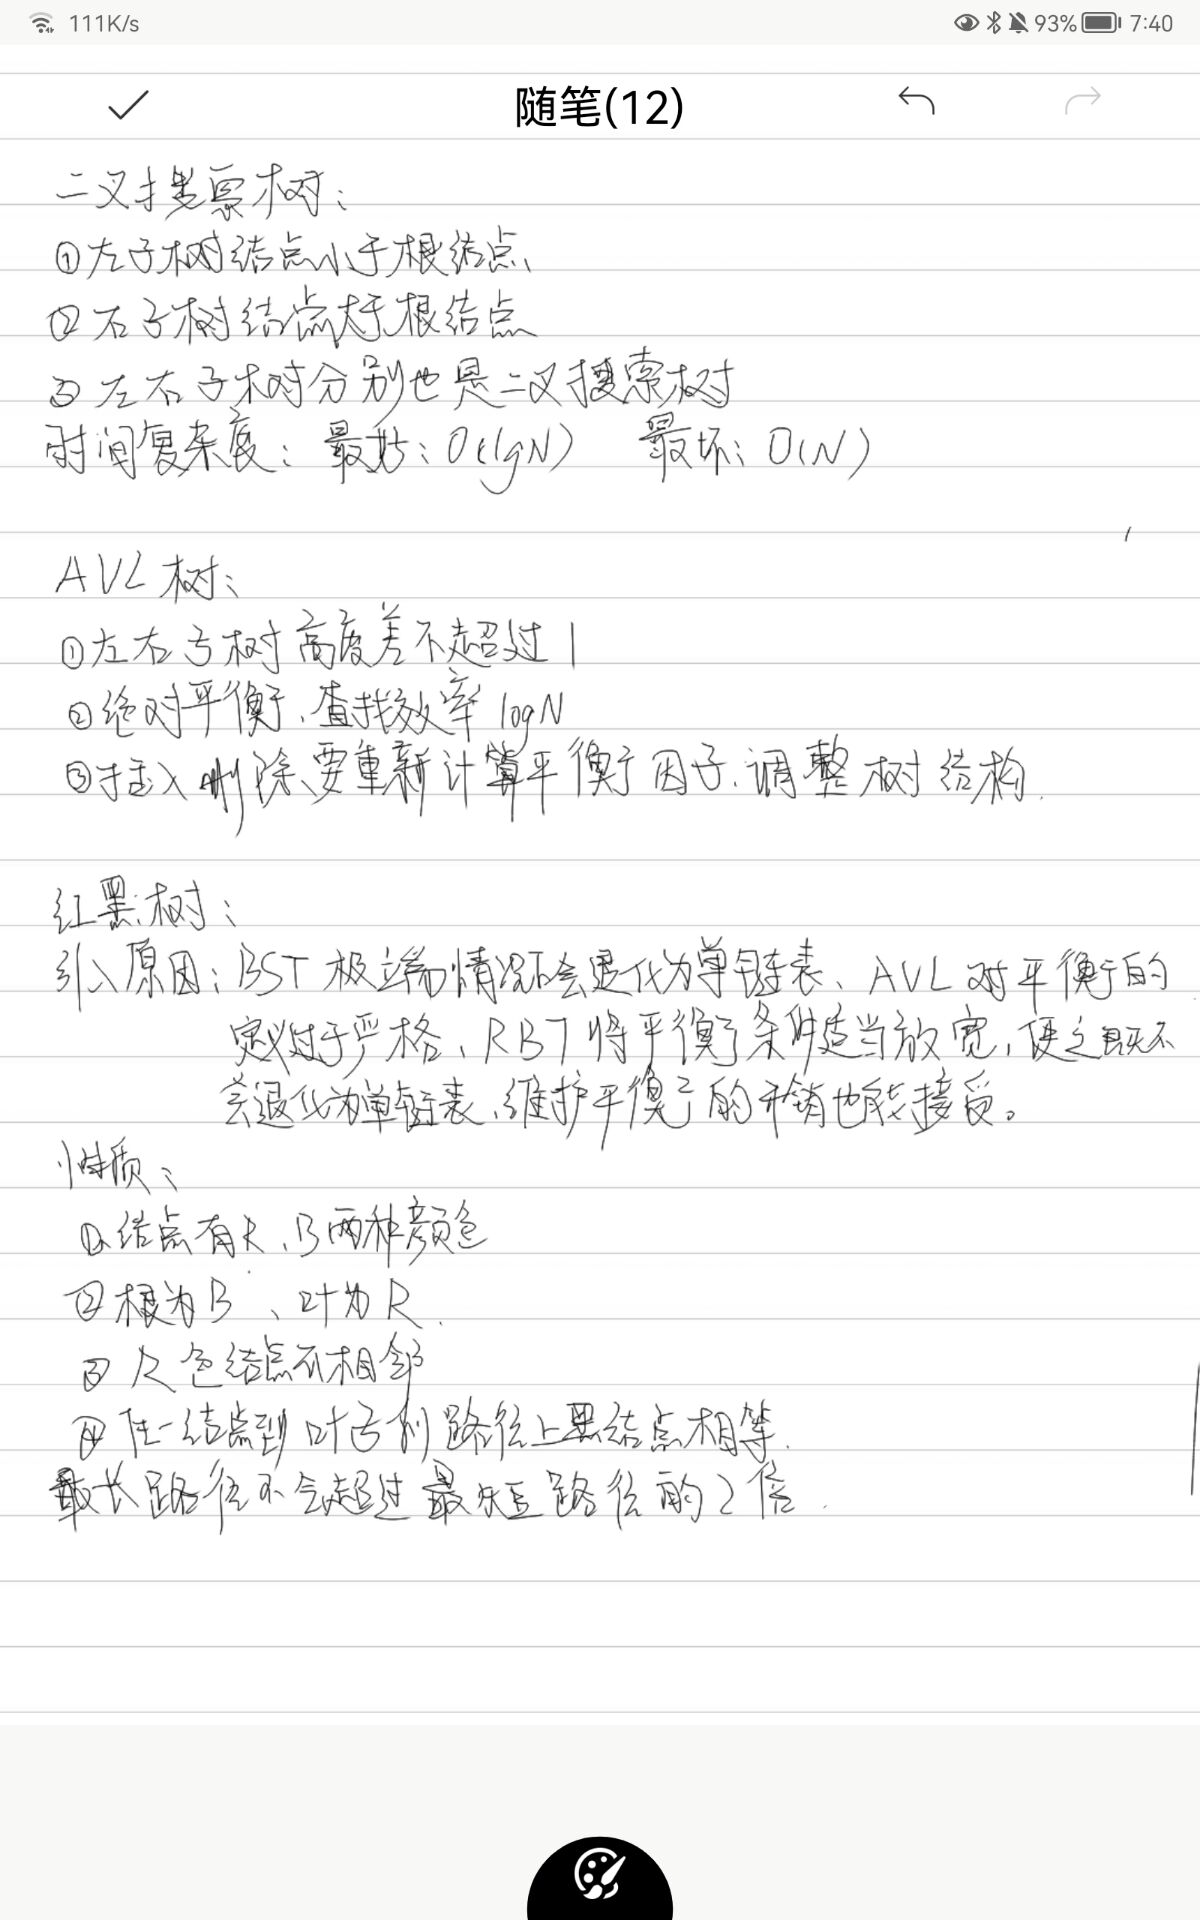 111K/s 93% 7:40
随笔(12)
二叉搜索树:
①左子树结点小于根结点、
②右子树结点大于根结点
③左右子树分别也是二叉搜索树
时间复杂度: 最好: O(lgN) 最坏: O(N)
AVL树:
①左右子树高度差不超过1
②绝对平衡、查找效率logN
③插入删除、要重新计算平衡因子、调整树结构.
红黑树:
引入原因: BST极端情况下会退化为单链表、AVL对平衡的
定义过于严格、RBT将平衡条件适当放宽,使之既不
会退化为单链表、维护平衡的开销也能接受。
性质:
①结点有R、B两种颜色
②根为B、叶为R.
③R色结点不相邻
④任一结点到叶子到路径上黑结点相等.
最长路径不会超过最短路径的2倍.